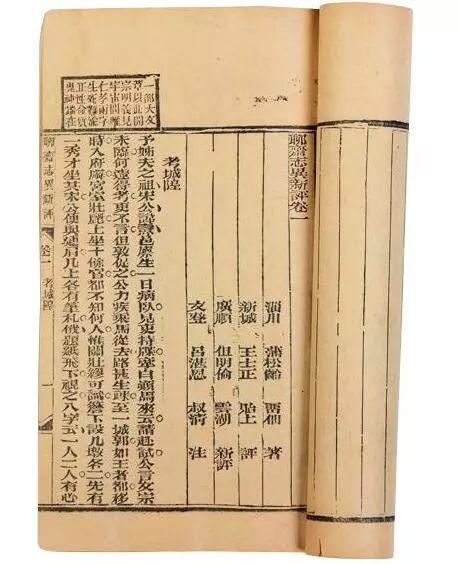 聊齋志異新評卷一
淄川 蒲松齡 畱仙 著
新城 王士正 貽上 評
廣順 但明倫 雲湖 新評
文登 呂湛恩 叔清 注
考城隍
一部大文
章以此開
宗明義見
宇宙間惟
仁孝兩字
生死難渝
正性命質
鬼神端在
予姊夫之祖宋公諱燾邑廩生一日病臥見吏持牒牽白顚馬來云請赴試公言文宗
未臨何遽得考吏不言但敦促之公力疾乘馬從去路甚生疎至一城郭如王者都移
時入府廨宮室壯麗上坐十餘官都不知何人惟關壯繆可識簷下設几墩各二先有
一秀才坐其末公便與連肩几上各有筆札俄題紙飛下視之八字云一人二人有心
聊齋志異新評 卷一 考城隍 一